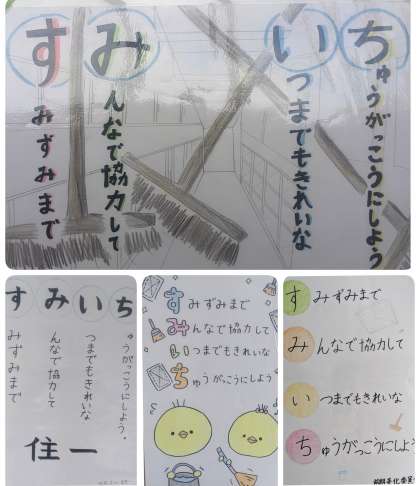 すみずみまで
みんなで協力して
いつまでもきれいな
ちゅうがっこうにしよう
すみいち
すみずみまで
みんなで協力して
いつまでもきれいな
ちゅうがっこうにしよう。
住一
すみずみまで
みんなで協力して
いつまでもきれいな
ちゅうがっこうにしよう
すみずみまで
みんなで協力して
いつまでもきれいな
ちゅうがっこうにしよう